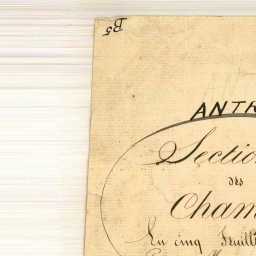 B5
ANTR
Section
des
Cham
En cinq feuill